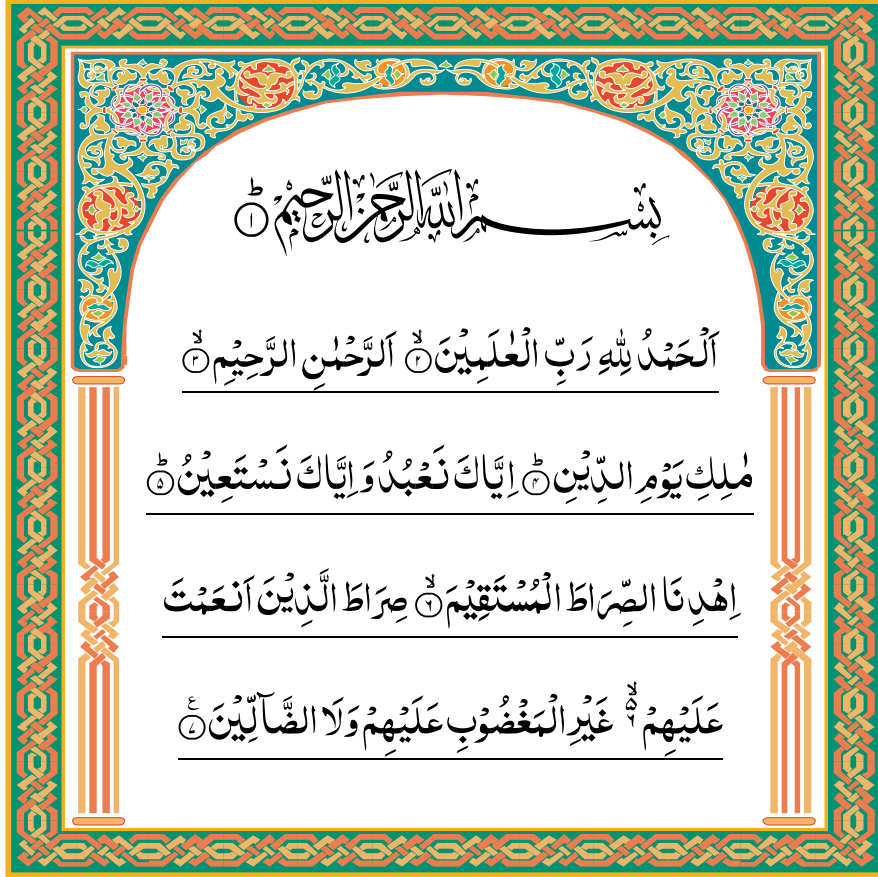 بِسْمِ اللّٰهِ الرَّحْمٰنِ الرَّحِيْمِ ؕ﴿۱﴾
اَلْحَمْدُ لِلّٰهِ رَبِّ الْعٰلَمِيْنَ ۙ﴿۲﴾ الرَّحْمٰنِ الرَّحِيْمِ ۙ﴿۳﴾
مٰلِكِ يَوْمِ الدِّيْنِ ؕ﴿۴﴾ اِيَّاكَ نَعْبُدُ وَ اِيَّاكَ نَسْتَعِيْنُ ؕ﴿۵﴾
اِهْدِنَا الصِّرَاطَ الْمُسْتَقِيْمَ ۙ﴿۶﴾ صِرَاطَ الَّذِيْنَ اَنْعَمْتَ
عَلَيْهِمْ ۙ۬ غَيْرِ الْمَغْضُوْبِ عَلَيْهِمْ وَلَا الضَّآلِّيْنَ ﴿۷﴾ ع